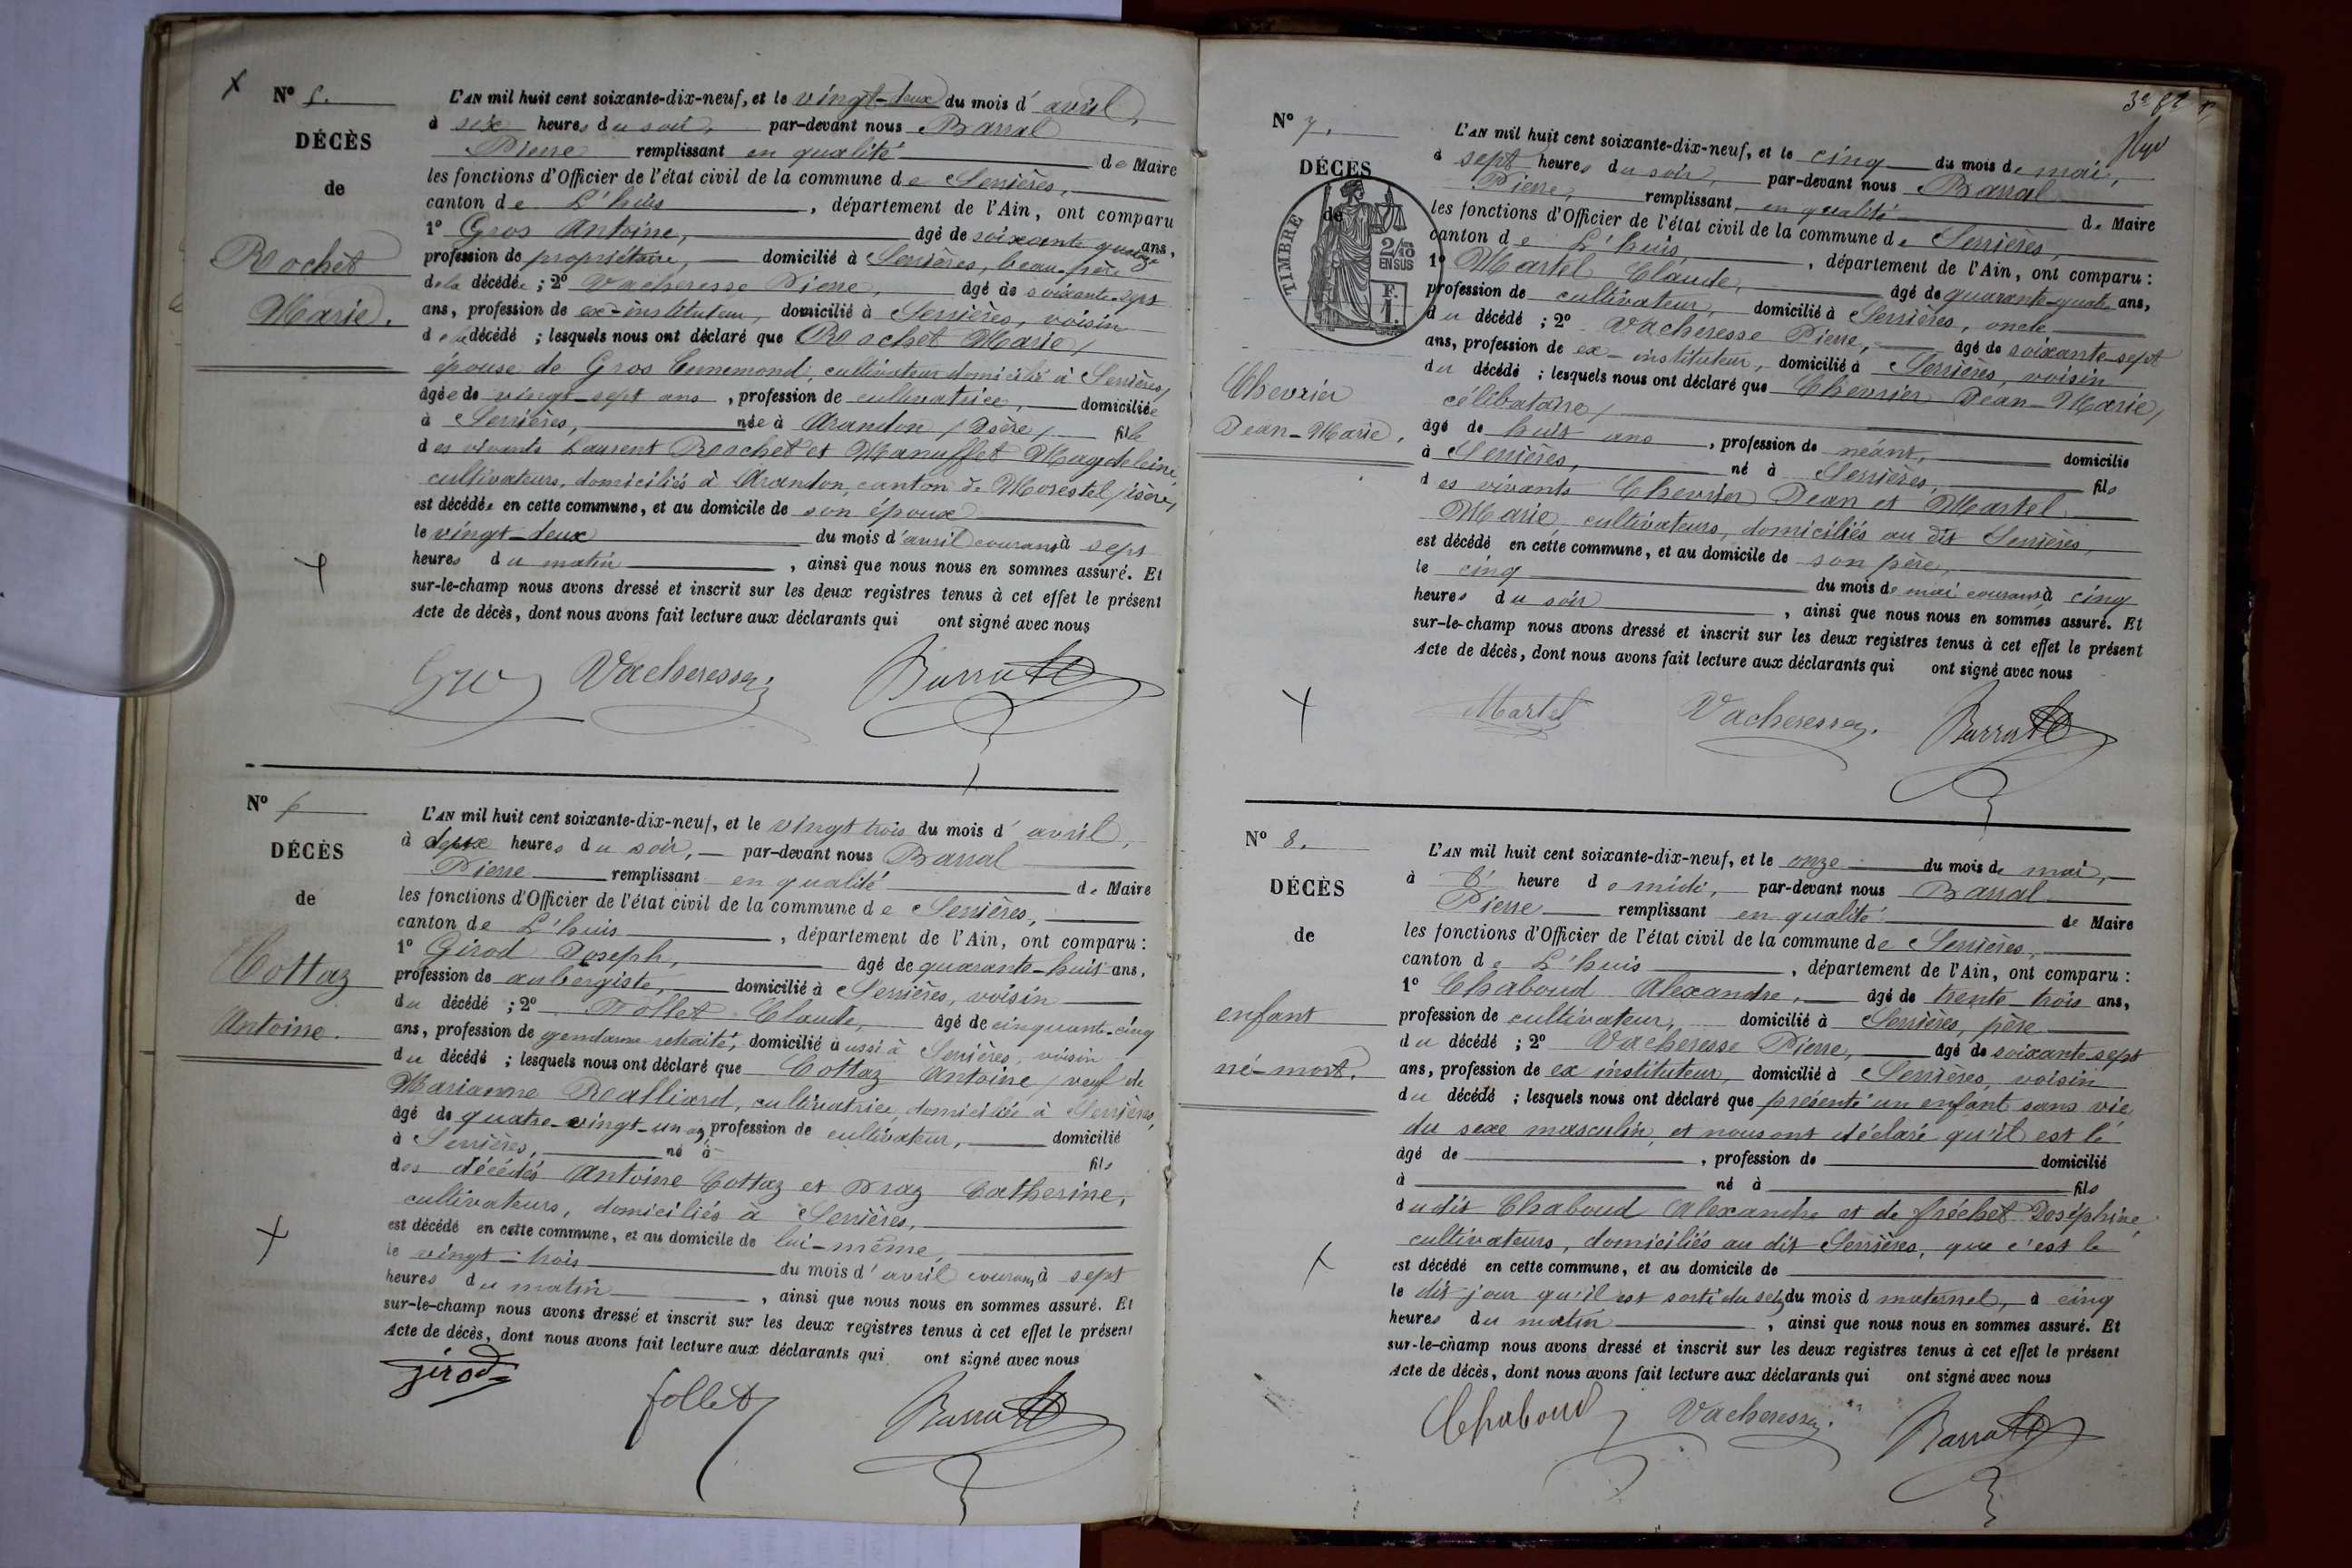 N° 5.
DÉCÈS
de
Rochet
Marie.
L'AN mil huit cent soixante-dix-neuf, et le vingt-deux du mois d'avril,
à six heures du soir, par-devant nous Barral
Pierre remplissant en qualité de Maire
les fonctions d'Officier de l'état civil de la commune de Serrières,
canton de L'huis, département de l'Ain, ont comparu
1° Gros Antoine, âgé de soixante quatorze ans,
profession de propriétaire, domicilié à Serrières, beau-père
de la décédée ; 2° Vacheresse Pierre, âgé de soixante-sept
ans, profession de ex-instituteur, domicilié à Serrières, voisin
de la décédé ; lesquels nous ont déclaré que Rochet Marie,
épouse de Gros cultivateur domicilié à Serrières,
âgée de vingt-sept ans, profession de cultivatrice, domiciliée
à Serrières, née à Arandon (Isère) fille
des vivants Laurent Rochet et Manuffet Magdeleine
cultivateurs, domiciliés à Arandon, canton de Morestel (isère)
est décédée en cette commune, et au domicile de son époux
le vingt-deux du mois d'avril courant à sept
heures du matin, ainsi que nous nous en sommes assuré. Et
sur-le-champ nous avons dressé et inscrit sur les deux registres tenus à cet effet le présent
Acte de décès, dont nous avons fait lecture aux déclarants qui ont signé avec nous
Gros Vacheresse Barral
N° 6
DÉCÈS
de
Cottaz
Antoine.
L'AN mil huit cent soixante-dix-neuf, et le vingt trois du mois d'avril,
à deux heures du soir, par-devant nous Barral
Pierre remplissant en qualité de Maire
les fonctions d'Officier de l'état civil de la commune de Serrières,
canton de L'huis, département de l'Ain, ont comparu :
1° Girod Joseph, âgé de quarante-huit ans,
profession de aubergiste, domicilié à Serrières, voisin
du décédé ; 2° Follet Claude, âgé de cinquante-cinq
ans, profession de gendarme retraité, domicilié aussi à Serrières, voisin
du décédé ; lesquels nous ont déclaré que Cottaz Antoine, veuf de
Marianne cultivatrice domiciliée à Serrières,
âgé de quatre-vingt-un ans, profession de cultivateur, domicilié
à Serrières, né à fils
des décédés Antoine Cottaz et Catherine,
cultivateurs, domiciliés à Serrières,
est décédé en cette commune, et au domicile de lui-même,
le vingt-trois du mois d'avril courant, à sept
heures du matin, ainsi que nous nous en sommes assuré. Et
sur-le-champ nous avons dressé et inscrit sur les deux registres tenus à cet effet le présent
Acte de décès, dont nous avons fait lecture aux déclarants qui ont signé avec nous
girod follet Barral
N° 7.
DÉCÈS
de
TIMBRE
2/10
EN SUS
F.
1.
Chevrier
Jean-Marie.
L'AN mil huit cent soixante-dix-neuf, et le cinq du mois de mai,
à sept heures du soir, par-devant nous Barral
Pierre, remplissant en qualité de Maire
les fonctions d'Officier de l'état civil de la commune de Serrières,
canton de L'huis, département de l'Ain, ont comparu :
1° Martel Claude, âgé de quarante-quatre ans,
profession de cultivateur, domicilié à Serrières, oncle
du décédé ; 2° Vacheresse Pierre, âgé de soixante-sept
ans, profession de ex-instituteur, domicilié à Serrières, voisin
du décédé ; lesquels nous ont déclaré que Chevrier Jean-Marie,
célibataire,
âgé de huit ans, profession de néant, domicilié
à Serrières, né à Serrières, fils
des vivants Chevrier Jean et Martel
Marie cultivateurs, domiciliés au dit Serrières,
est décédé en cette commune, et au domicile de son père,
le cinq du mois de mai courant à cinq
heures du soir, ainsi que nous nous en sommes assuré. Et
sur-le-champ nous avons dressé et inscrit sur les deux registres tenus à cet effet le présent
Acte de décès, dont nous avons fait lecture aux déclarants qui ont signé avec nous
Martel Vacheresse. Barral
N° 8.
DÉCÈS
de
enfant
né-mort.
L'AN mil huit cent soixante-dix-neuf, et le onze du mois de mai,
à l' heure de midi, par-devant nous Barral
Pierre remplissant en qualité de Maire
les fonctions d'Officier de l'état civil de la commune de Serrières,
canton de L'huis, département de l'Ain, ont comparu :
1° Chaboud Alexandre, âgé de trente-trois ans,
profession de cultivateur, domicilié à Serrières, père
du décédé ; 2° Vacheresse Pierre, âgé de soixante-sept
ans, profession de ex instituteur, domicilié à Serrières, voisin
du décédé ; lesquels nous ont déclaré que présenté un enfant sans vie
du sexe masculin, et nous ont déclaré qu'il est le
âgé de, profession de domicilié
à né à fils
du dit Chaboud Alexandre et de fréchet Joséphine
cultivateurs, domiciliés au dit Serrières, que c'est le
est décédé en cette commune, et au domicile de
le dit jour qu'il est sorti du sein du mois d maternel, à cinq
heures du matin, ainsi que nous nous en sommes assuré. Et
sur-le-champ nous avons dressé et inscrit sur les deux registres tenus à cet effet le présent
Acte de décès, dont nous avons fait lecture aux déclarants qui ont signé avec nous
Chaboud Vacheresse. Barral